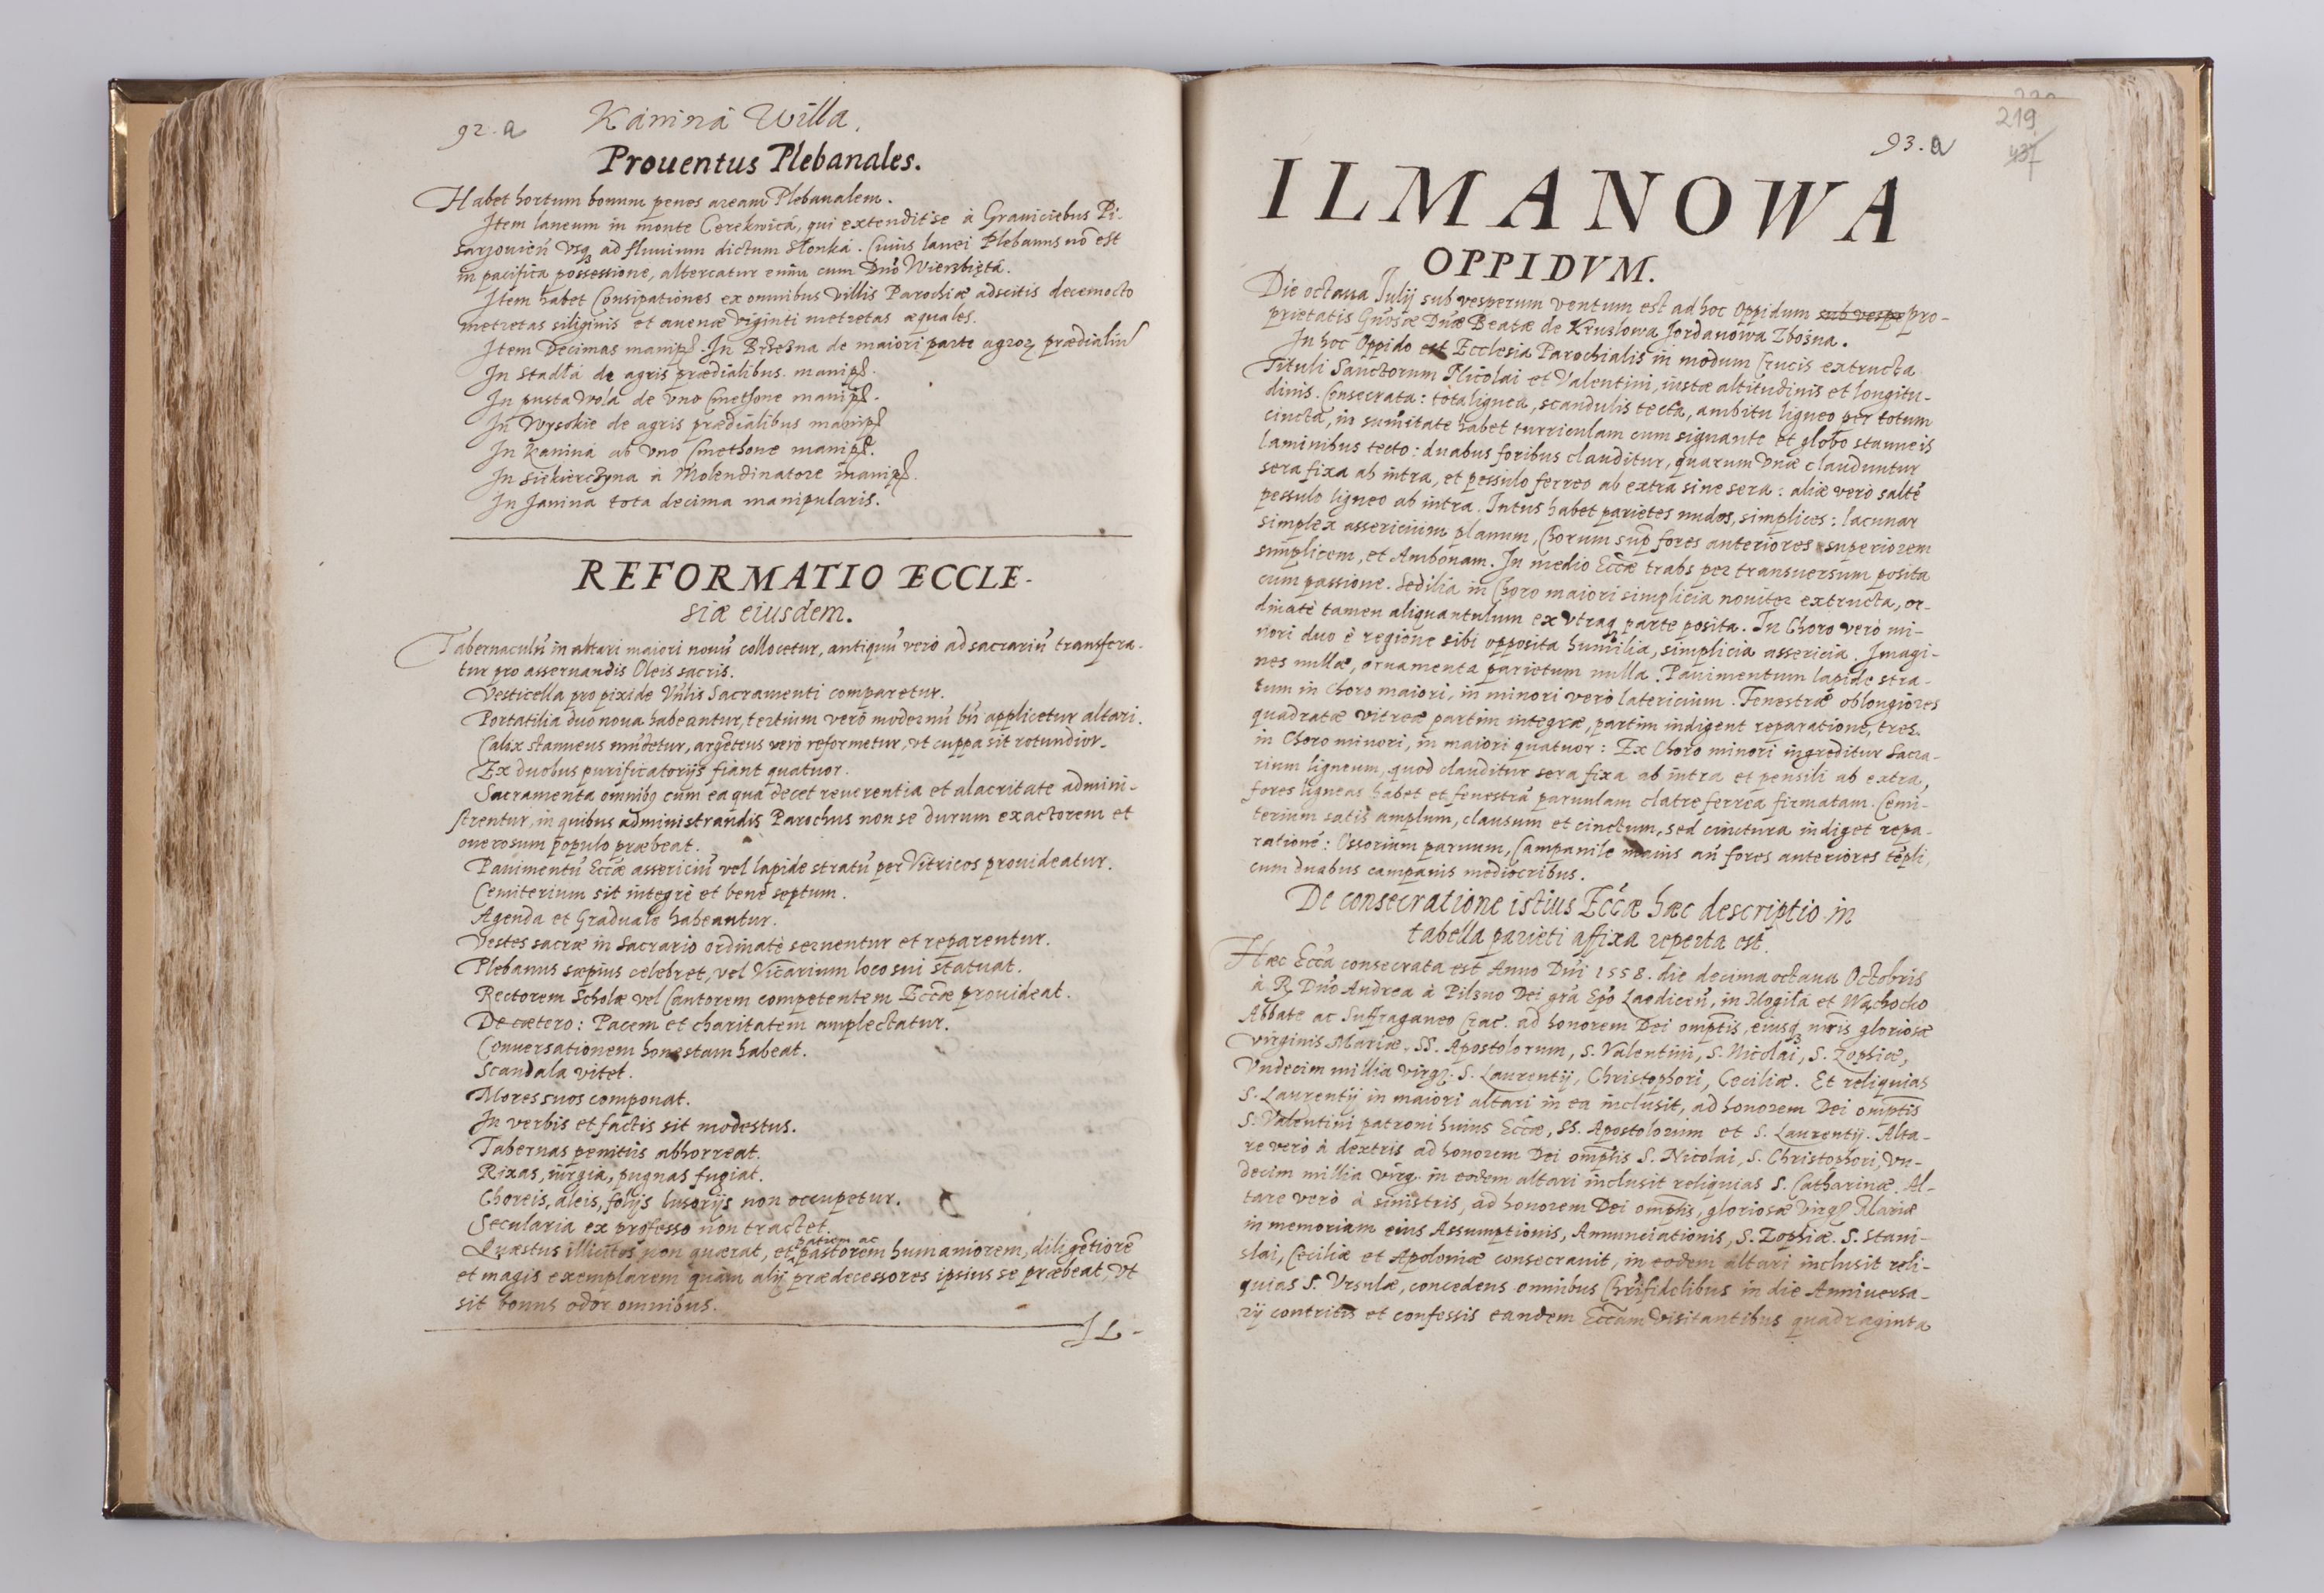 92. a
Kánina Willa.
Prouentus Plebanales.
Habet hortum bonum penes aream Plebanalem.
Item laneum in monte Cerekwicá, qui extendit se à Graniciebus Pi-
sarzouień vsq3 ad fluuium dictum Słonká. Cuius lanei Plebanus nō est
in pacifica possessione, altercatur enim cum Dn̄o Wierzbiętá.
Item habet Consipationes ex omnibus Villis Parochiæ adscitis decemocto
metretas siliginis et auenæ viginti metretas æquales.
Item Decimas manip. In Brzezna de maiori parte agroꝝ prædialiū
In Stadłá de agris prædialibus. manip.
In pusta Wola de vno Cmethone manip.
In Wysokie de agris prædialibus manip
In Kaniná ab vno Cmethone manip.
In Siekierczyna à Molendinatore manip.
In Janina tota decima manipularis.
REFORMATIO ECCLE-
siæ eiusdem.
Tabernaculū in altari maiori nouū collocetur, antiquū verò ad sacrariū transfera-
tur pro asseruandis Oleis sacris.
Vesticella pro pixide Vn̄lis Sacramenti comparetur.
Portatilia duo noua habeantur, tertium verò modernū bn̄ applicetur altari.
Calix stanneus mūdetur, argēteus verò reformetur, vt cuppa sit rotundior.
Ex duobus purificatorijs fiant quatuor.
Sacramenta omnibꝫ cum ea quā decet reuerentia et alacritate admini-
strentur, in quibus administrandis Parochus non se durum exactorem et
onerosum populo præbeat.
Pauimentū Eccæ assericiū vel lapide stratū per Vitricos prouideatur.
Cemiterium sit integrè et benè septum.
Agenda et Graduale habeantur.
Vestes sacræ in Sacrario ordinatè seruentur et reparentur.
Plebanus sæpius celebret, vel Vicarium loco sui statuat.
Rectorem Scholæ vel Cantorem competentem Eccæ prouideat.
De cætero: Pacem et charitatem amplectatur.
Conuersationem honestam habeat.
Scandala vitet.
Mores suos componat.
In verbis et factis sit modestus.
Tabernas penitùs abhorreat.
Rixas, iurgia, pugnas fugiat.
Choreis, aleis, folijs lusorijs non occupetur.
Secularia ex professo non tractet.
patrem ac
Quæstus illicitos non quærat, et pastorem humaniorem, diligētiorē
et magis exemplarem quàm alij prædecessores ipsius se præbeat, vt
sit bonus odor omnibus.
IL-
219
437
93. a
ILMANOWA
OPPIDVM.
Die octaua Julij sub vesperum ventum est ad hoc Oppidum sub vespe pro-
prietatis Gn̄osæ Dn̄æ Beatæ de Kruzlowa Jordanowa Zbosna.
In hoc Oppido est Ecclesia Parochialis in modum Crucis extructa
Tituli Sanctorum Nicolai et Valentini, iustæ altitudinis et longitu-
dinis. Consecrata: tota lignea, scandulis tecta, ambitu ligneo per totum
cincta, in sum̄itate habet turriculam cum signante et globo stanneis
laminibus tecto: duabus foribus clauditur, quarum vnæ clauduntur
sera fixa ab intra, et pessulo ferreo ab extra sine sera: aliæ verò saltē
pessulo ligneo ab intra. Intus habet parietes nudos, simplices: lacunar
simplex assericium planum, Chorum sup̄ fores anteriores superiorem
simplicem, et Ambonam. In medio Eccæ trabs per transuersum posita
cum passione. Sedilia in Choro maiori simplicia nouiter extructa, or-
dinatè tamen aliquantulum ex vtraq3 parte posita. In Choro verò mi-
nori duo è regione sibi opposita humilia, simplicia assericia. Imagi-
nes nullæ, ornamenta parietum nulla. Pauimentum lapide stra-
tum in Choro maiori, in minori verò latericium. Fenestræ oblongiores
quadratæ vitreæ partim integræ, partim indigent reparatione, tres
in Choro minori, in maiori quatuor: Ex Choro minori ingreditur Sacra-
rium ligneum, quod clauditur sera fixa ab intra et pensili ab extra,
fores ligneas habet et fenestrā paruulam clatre ferrea firmatam. Cemi-
terium satis amplum, clausum et cinctum, sed cinctura indiget repa-
rationé: Ossorium paruum, Campanile maius an̄ fores anteriores tēpli,
cum duabus campanis mediocribus.
De consecratione istius Eccæ hæc descriptio in
tabella parieti affixa reperta est.
Hæc Eccā consecrata est Anno Dn̄i 1558. die decima octaua Octobris
à R. Dn̄o Andrea à Pilsno Dei gr̄a Ep̄o Laodiceń, in Mogiłá et Wąchocko
Abbate ac Suffraganeo Crac. ad honorem Dei omp̄tis, eiusq3 mr̄is gloriosæ
Virginis Mariæ, SS. Apostolorum, S. Valentini, S. Nicolai, S. Zophiæ,
Vndecim millia virgꝫ. S. Laurentij, Christophori, Ceciliæ. Et reliquias
S. Laurentij in maiori altari in ea inclusit, ad honorem Dei omp̄tis
S. Valentini patroni huius Eccæ, SS. Apostolorum et S. Laurentij. Alta-
re verò à dextris ad honorem Dei omp̄tis S. Nicolai, S. Christophori, Vn-
decim millia virg. in eodem altari inclusit reliquias S. Catharinæ. Al-
tare verò à sinistris, ad honorem Dei omp̄tis, gloriosæ Virgꝫ Mariæ
in memoriam eius Assumptionis, Annunciationis, S. Zophiæ. S. Stani-
slai, Ceciliæ et Apoloniæ consecrauit, in eodem altari inclusit reli-
quias S. Vrsulæ, concedens omnibus Chrīfidelibus in die Anniuersa-
rij contritis et confessis eandem Eccam visitantibus quadraginta